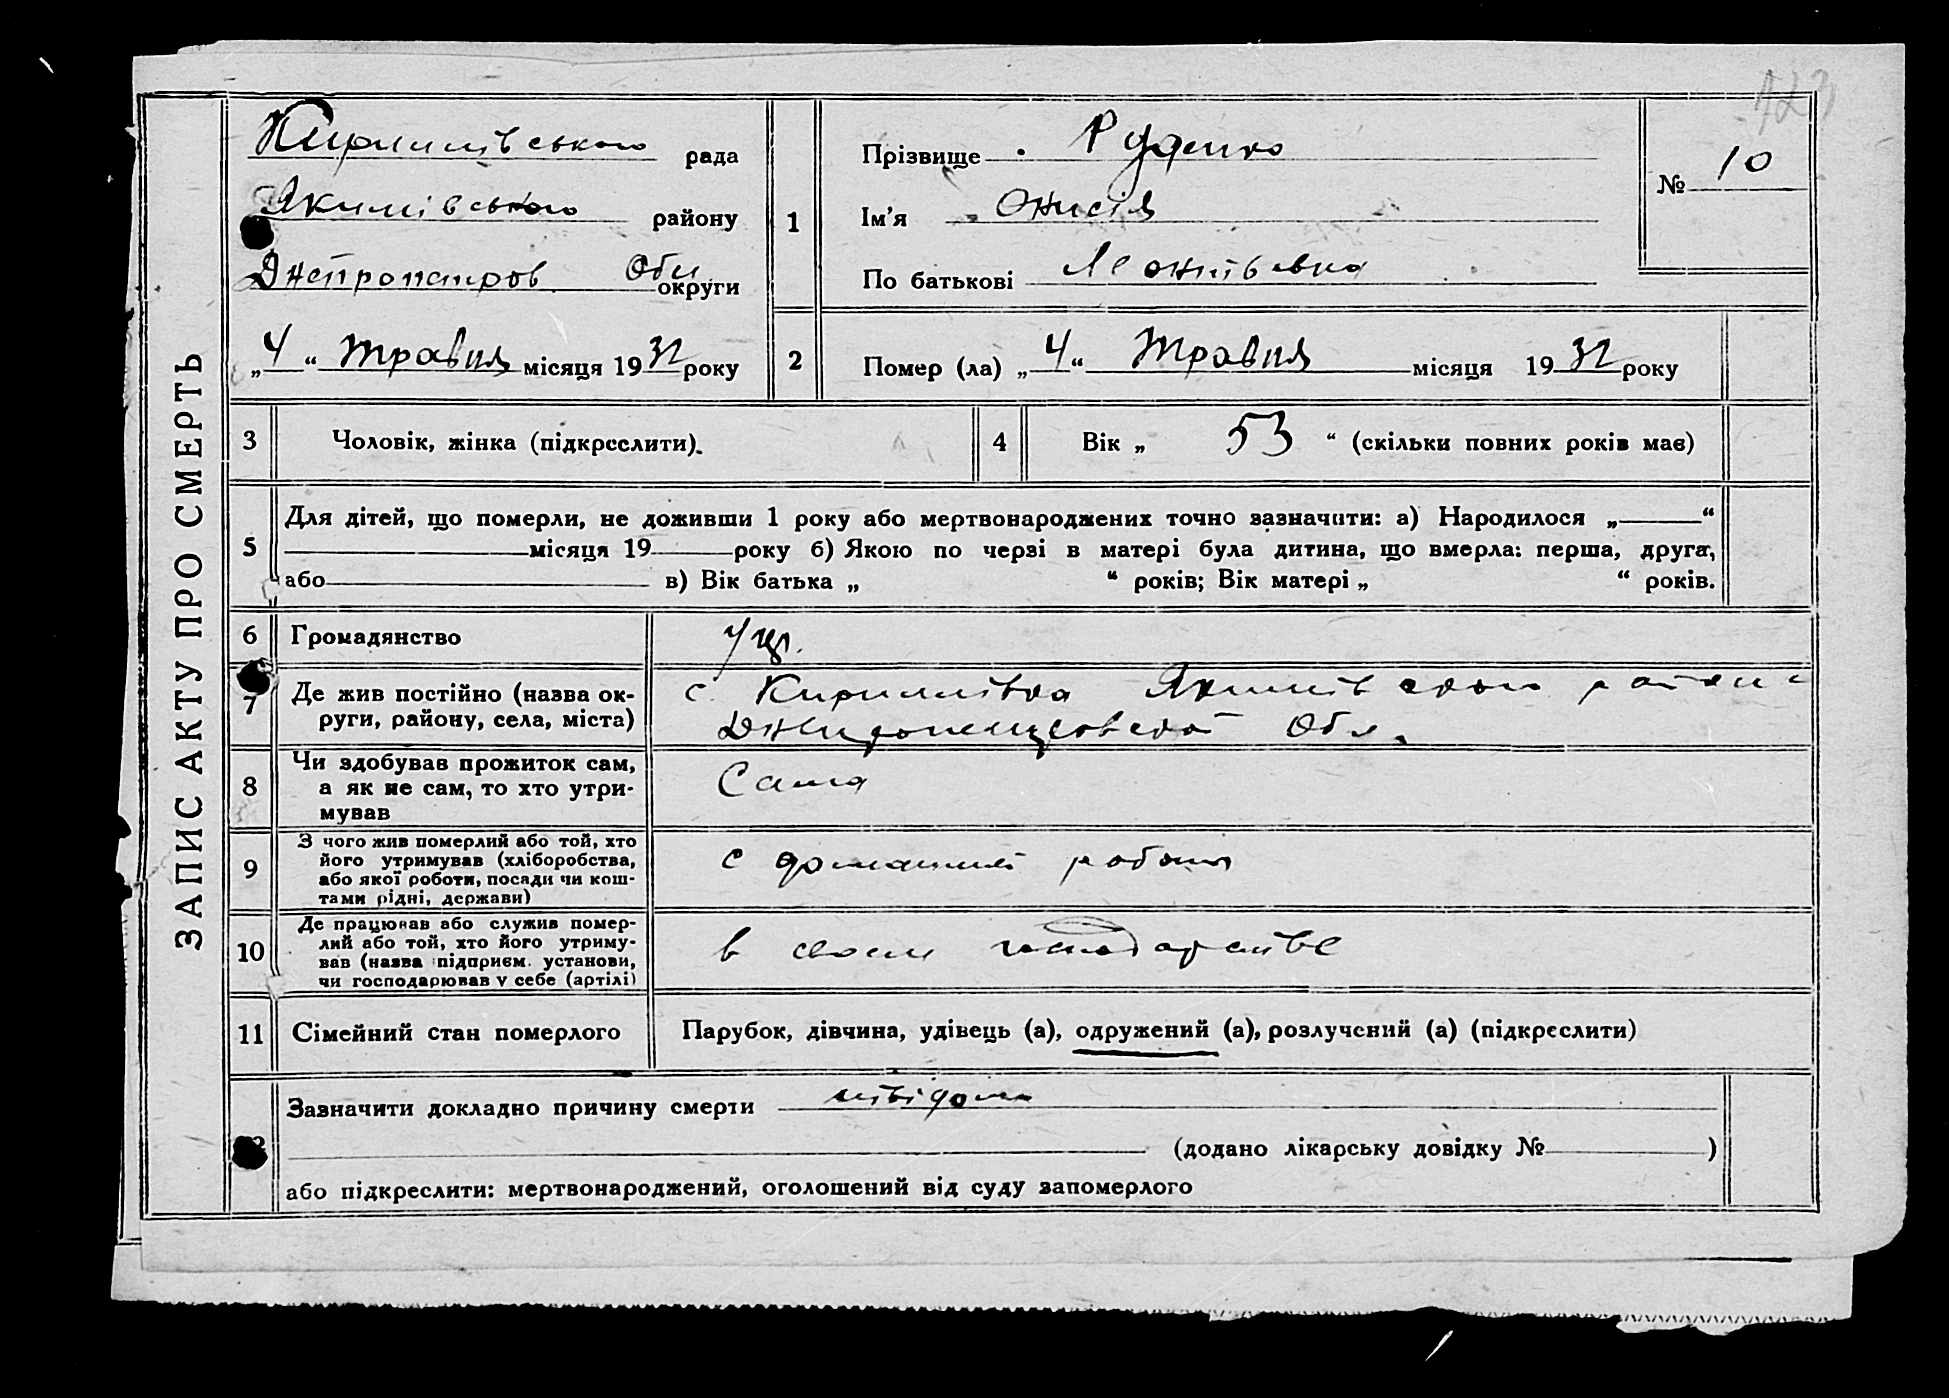 ЗАПИС АКТУ ПРО СМЕРТЬ
Кирилівського рада
Якимівського району
Днепропетров Обл. округи
„4“ травня місяця 1932 року
1
Прізвище Руденко
Ім'я Онисія
По батькові Леонтівна
№ 10
123
2
Помер (ла) „4“ Травня місяця 1932 року
3 Чоловік, жінка (підкреслити).
4 Вік „ 53 “ (скільки повних років має)
5 Для дітей, що померли, не доживши 1 року або мертвонароджених точно зазначити: а) Народилося „ “
місяця 19 року б) Якою по черзі в матері була дитина, що вмерла: перша, друга,
або в) Вік батька „ “ років; Вік матері „ “ років.
6 Громадянство Укр.
7 Де жив постійно (назва ок-
руги, району, села, міста)
с. Кирилівка Якимівского
Обл.
8 Чи здобував прожиток сам,
а як не сам, то хто утри-
мував
Сама
9 З чого жив померлий або той, хто
його утримував (хліборобства,
або якої роботи, посади чи кош-
тами рідні, держави)
с домашней работы
10 Де працював або служив помер-
лий або той, хто його утриму-
вав (назва підприєм. установи,
чи господарював у себе (артілі)
в своем
11 Сімейний стан померлого Парубок, дівчина, удівець (а), одружений (а), розлучений (а) (підкреслити)
Зазначити докладно причину смерти
(додано лікарську довідку № )
або підкреслити: мертвонароджений, оголошений від суду запомерлого